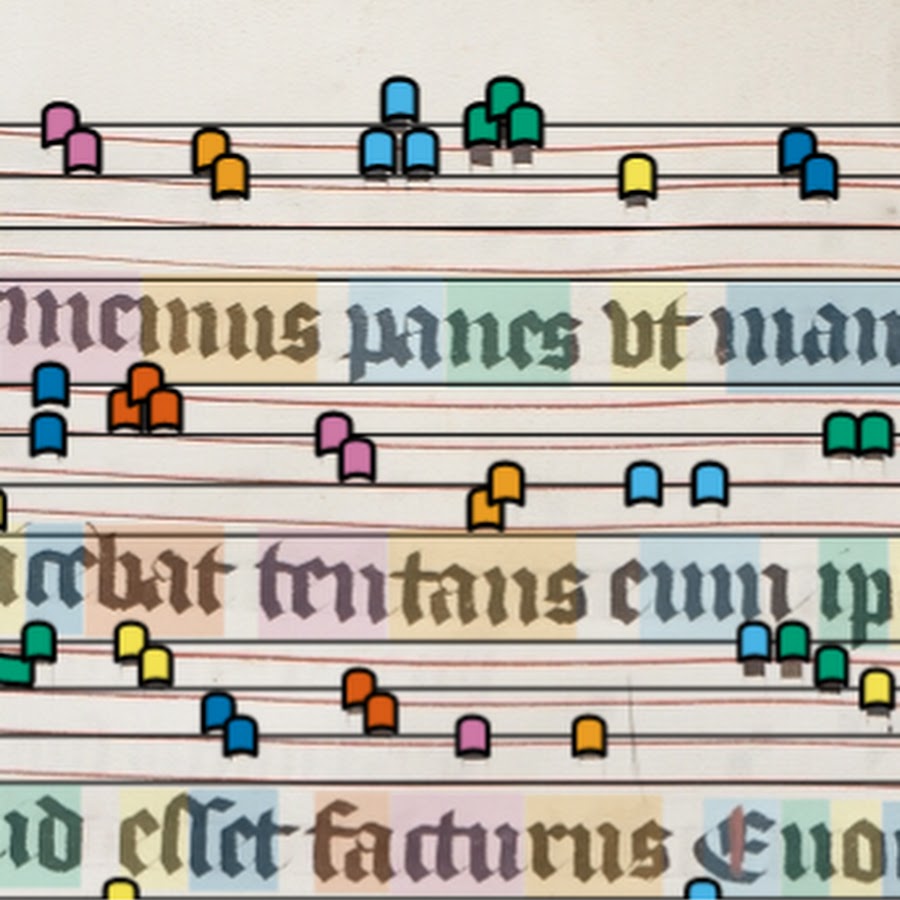 memus panes vt man
cebat tentans eum ip
id esset facturus Euo